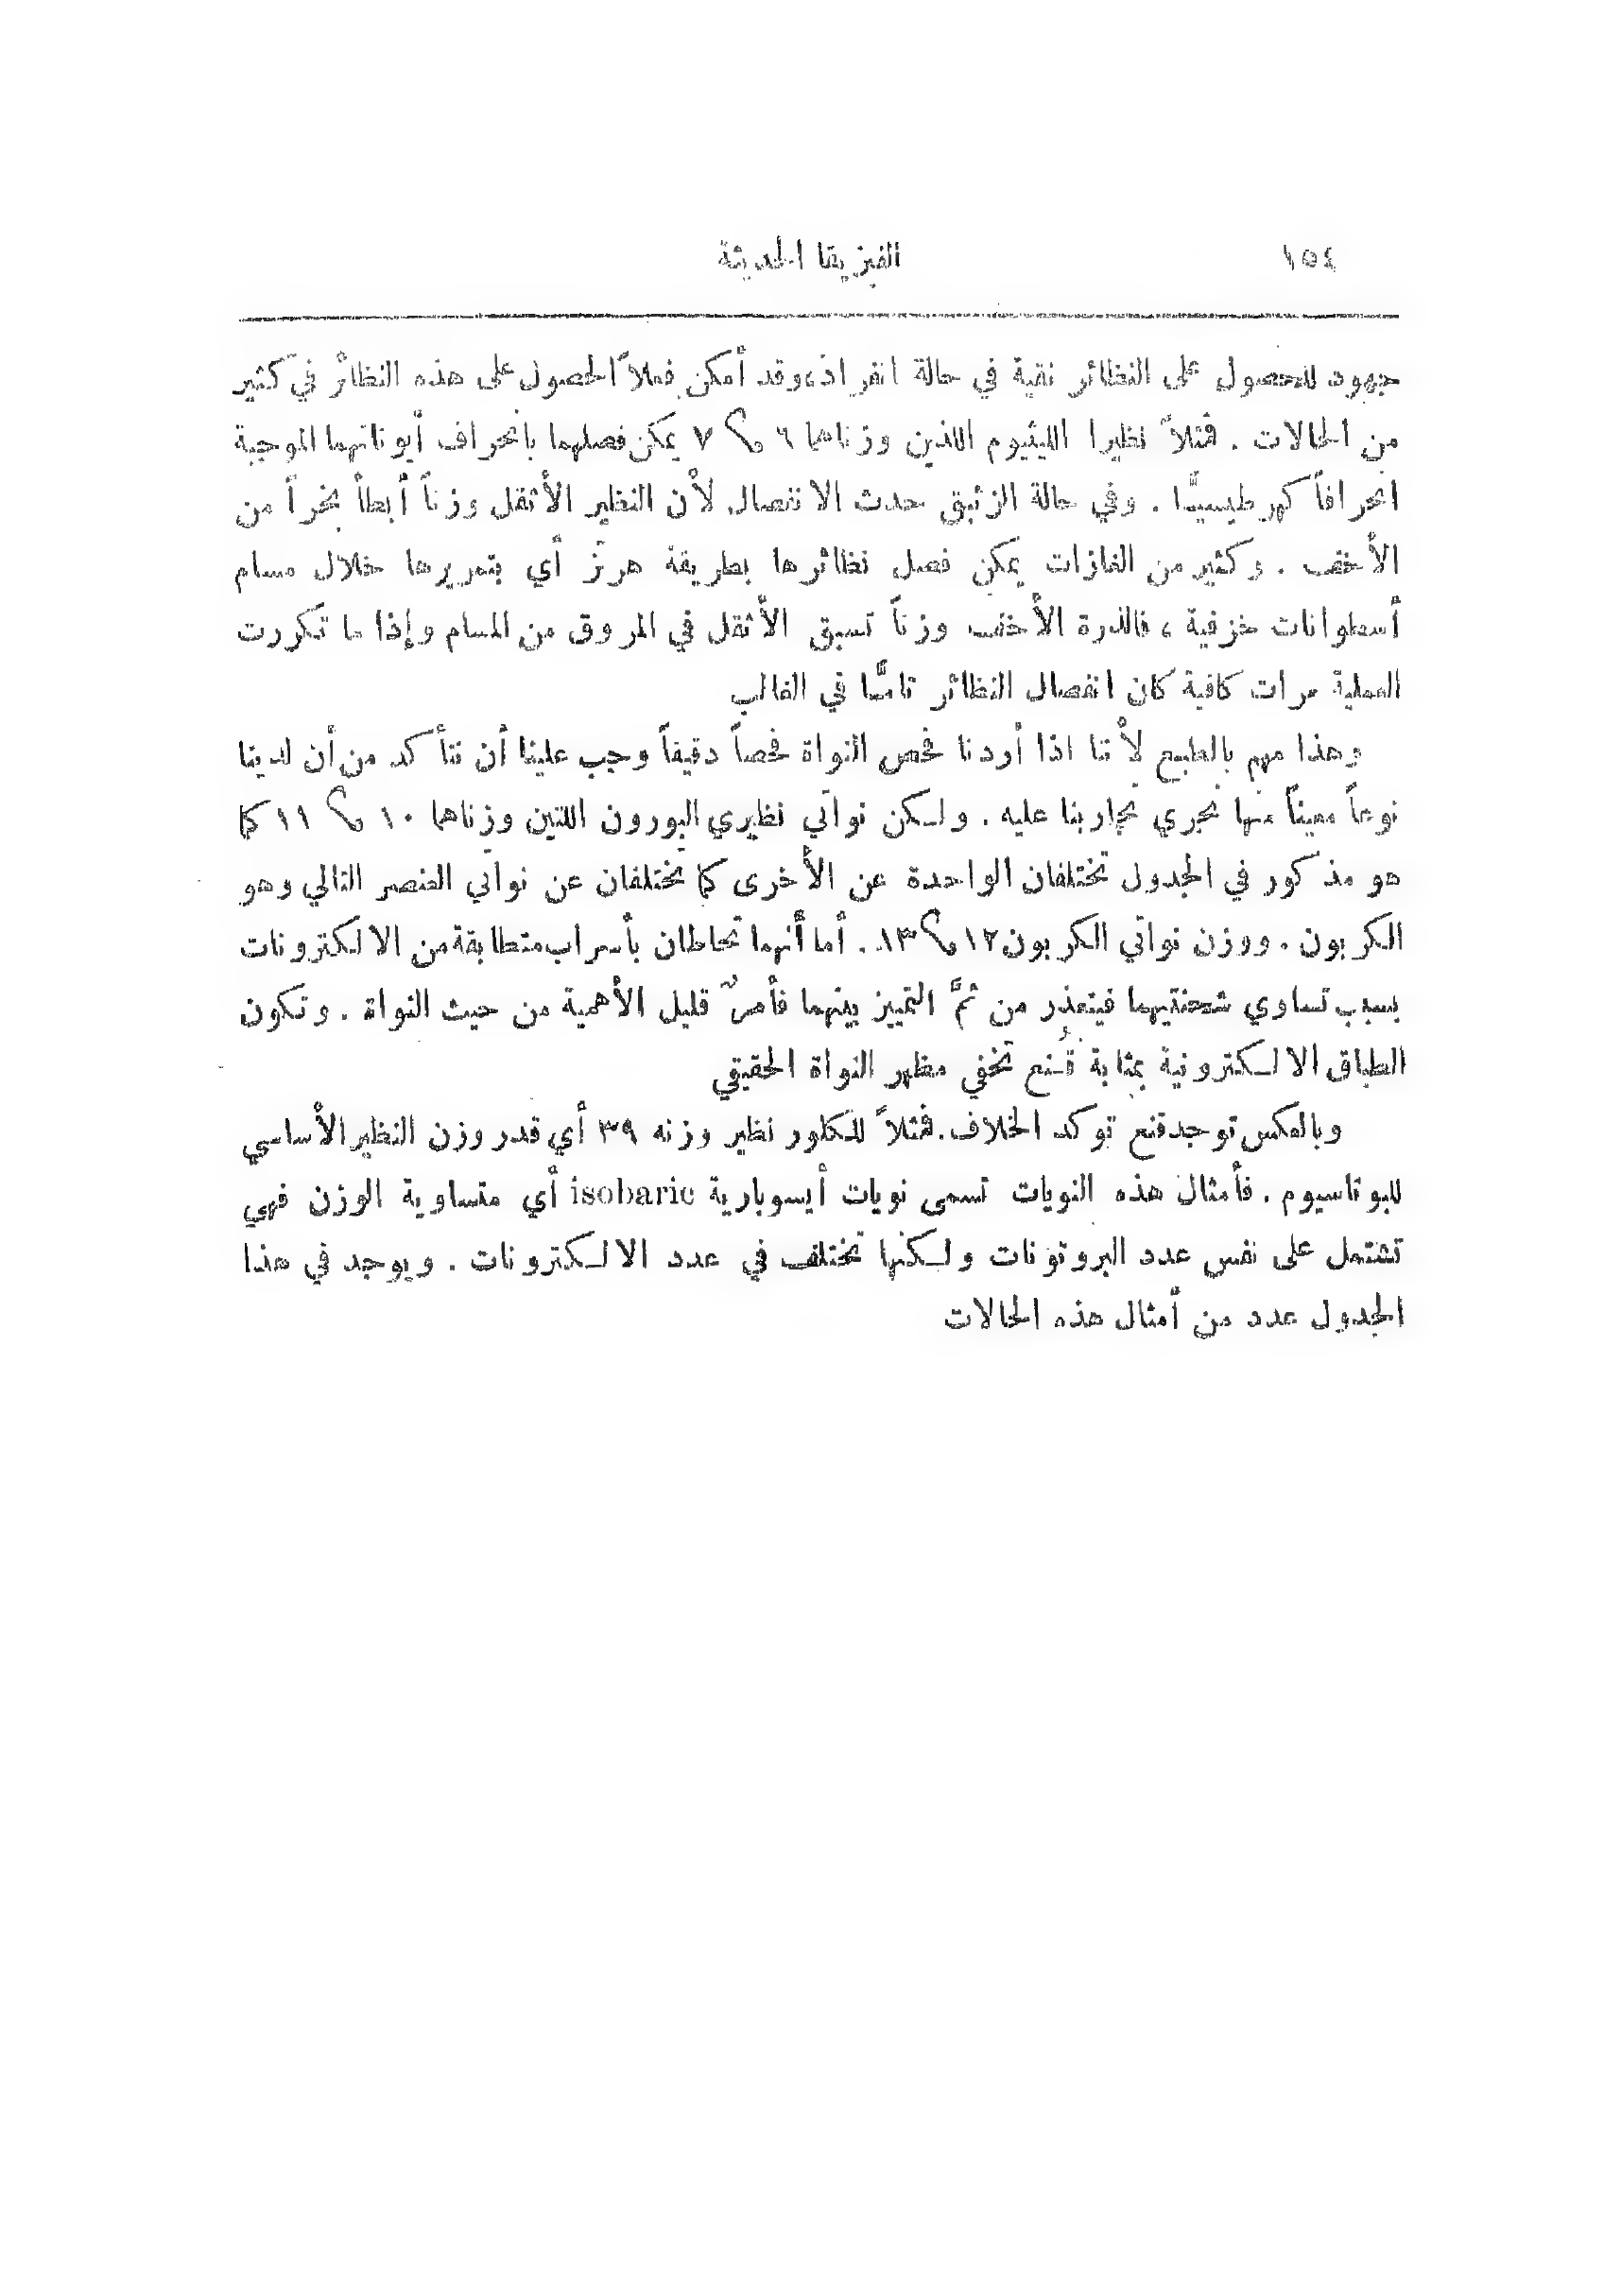 ١٥٤ الفيزيقا الحديثة
جهود للحصول على النظائر نقية في حالة انفراد، وقد أمكن فعلاً الحصول على هذه النظائر في كثير
من الحالات . فمثلاً نظيرا الليثيوم اللذين وزناهما ٦ و ٧ يمكن فصلهما بانحراف أيوناتهما الموجبة
انحرافاً كهرطيسيًّا . وفي حالة الزئبق حدث الانفصال لأن النظير الأثقل وزناً أبطأ بخراً من
الأخف . وكثير من الغازات يمكن فصل نظائرها بطريقة هرتز أي بتمريرها خلال مسام
أسطوانات خزفية ، فالذرة الأخف وزناً تسبق الأثقل في المروق من المسام وإذا ما تكررت
العملية مرات كافية كان انفصال النظائر تامًّا في الغالب
وهذا مهم بالطبع لأننا اذا أردنا فحص النواة فحصاً دقيقاً وجب علينا أن نتأكد من أن لدينا
نوعاً معيناً منها نجري تجاربنا عليه . ولكن نواتي نظيري البورون اللتين وزناهما ١٠ و ١١ كما
هو مذكور في الجدول تختلفان الواحدة عن الأخرى كما تختلفان عن نواتي العنصر التالي وهو
الكربون . ووزن نواتي الكربون ١٢ و ١٣ . أما أنهما تحاطان بأسراب متطابقة من الالكترونات
بسبب تساوي شحنتيهما فيتعذر من ثمَّ التمييز بينهما فأمرٌ قليل الأهمية من حيث النواة . وتكون
الطباق الالكترونية بمثابة قُنع تخفي مظهر النواة الحقيقي
وبالعكس توجد قنع توكد الخلاف . فمثلاً للكلور نظير وزنه ٣٩ أي قدر وزن النظير الأساسي
للبوتاسيوم . فأمثال هذه النويات تسمى نويات أيسوبارية isobaric أي متساوية الوزن فهي
تشتمل على نفس عدد البروتونات ولكنها تختلف في عدد الالكترونات . ويوجد في هذا
الجدول عدد من أمثال هذه الحالات